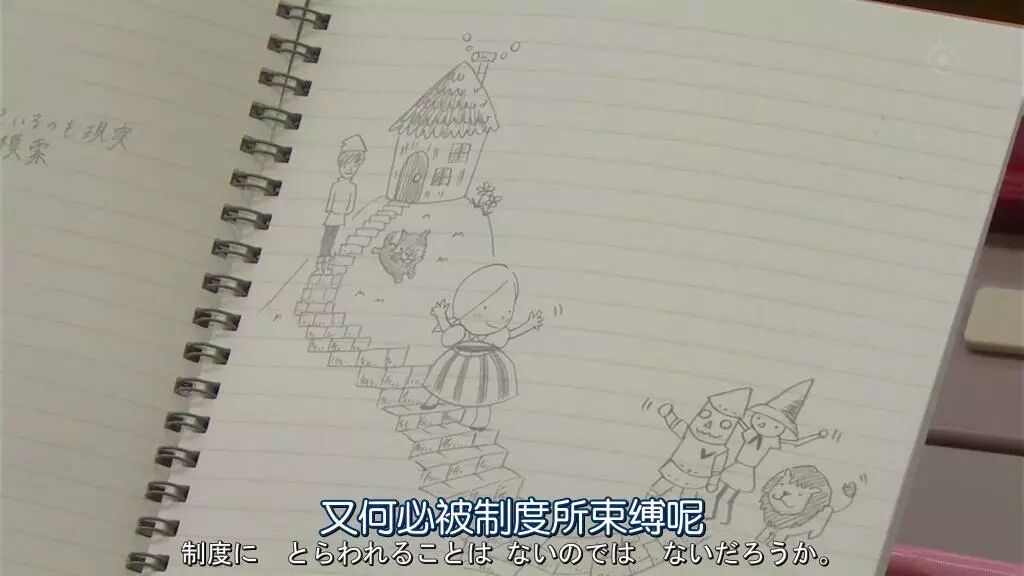 いるのを現実
模索
又何必被制度所束缚呢
制度に とらわれることは ないのでは ないだろうか。